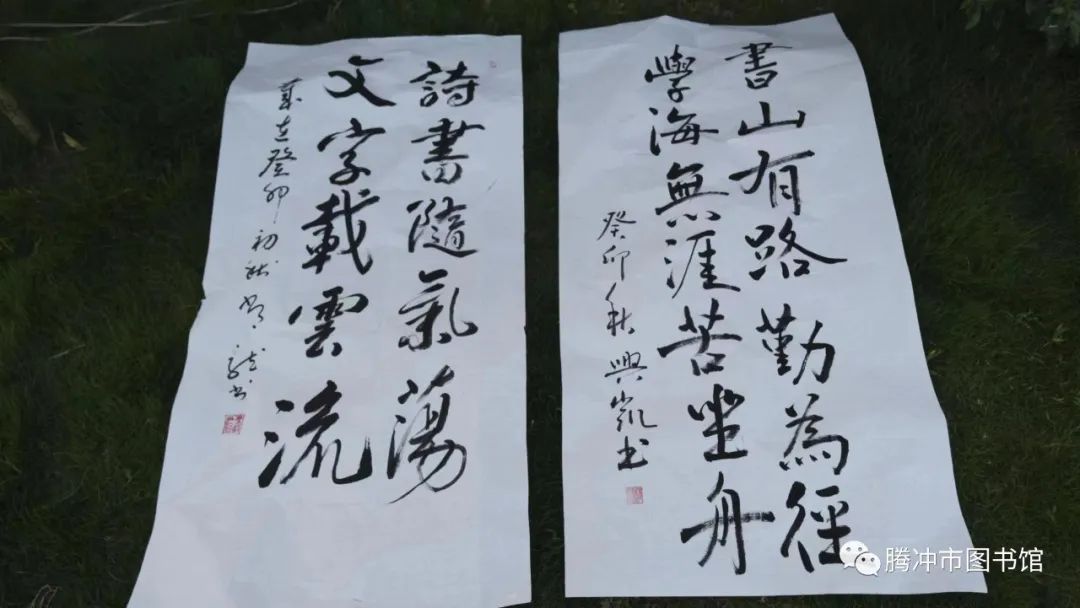 書山有路勤為徑
學海無涯苦坐舟
癸卯秋興凱书
詩書隨氣蕩
文字載雲流
歲在癸卯初秋书
腾冲市图书馆